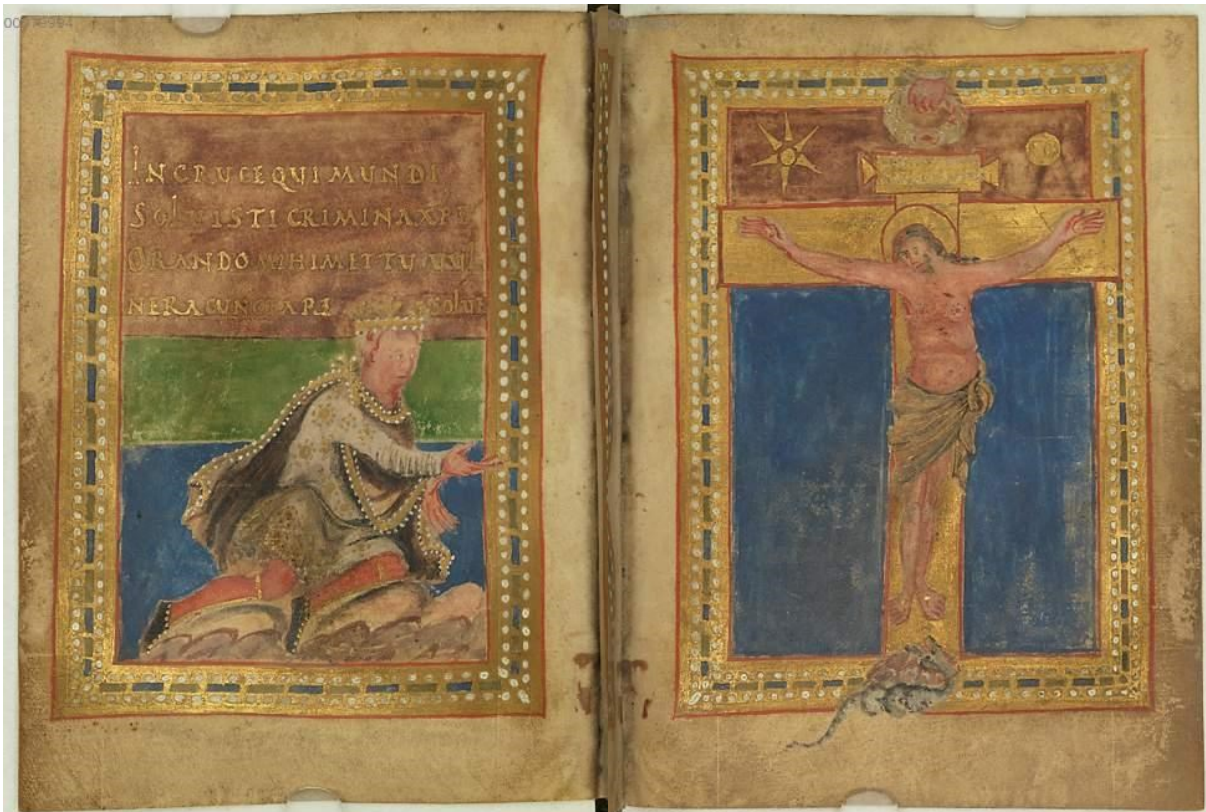 INCRUCEQUIMUNDI
SOLUISTICRIMINAXPE
ORANDOMIHIMETTUUUL
NERACUNCTARE solue
39